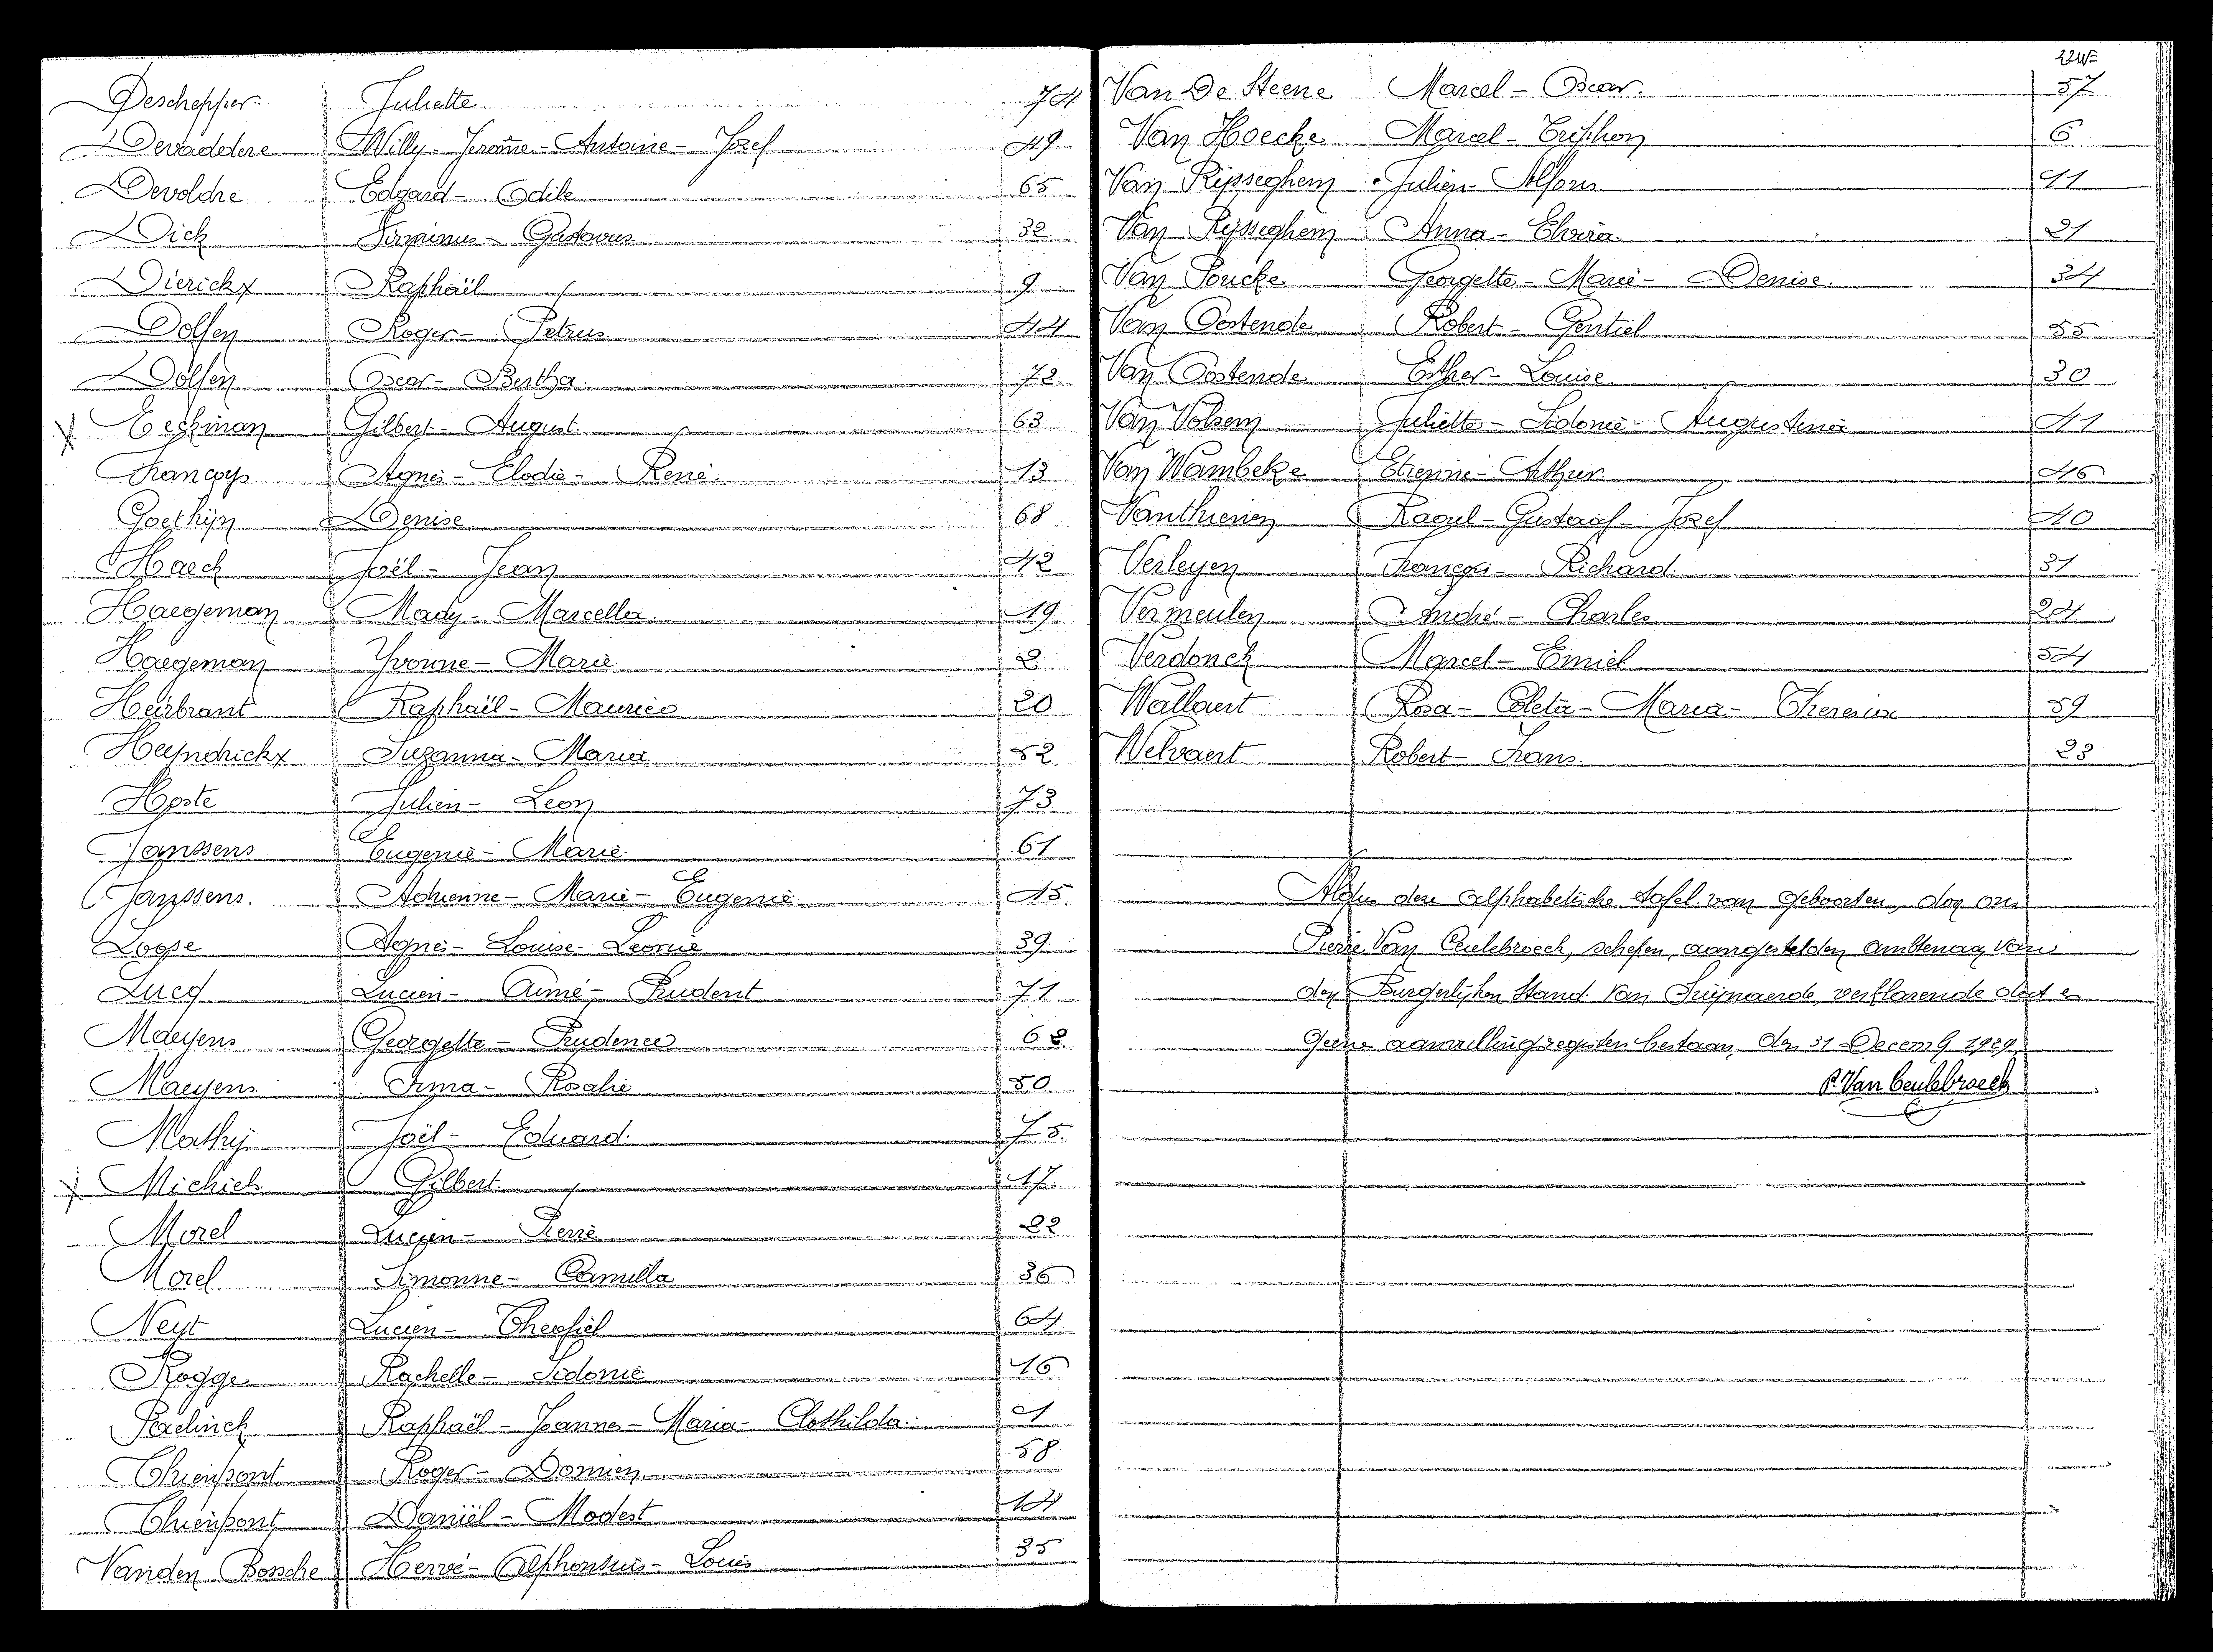 Deschepper Juliette 74
Devaddere Willy - Jerome - Antoine - Jozef 49
Devoldre Edgard - Odile 65
Dick Firminus - Gustavus 32
Dierickx Raphaël 9
Dolfen Roger - Petrus 44
Dolfen Oscar - Bertha 72
X Eeckman Gilbert - August 63
Françoys Agnes - Elodie - René 13
Goethijn Denise 68
Haeck Joël - Jean 42
Haegeman Mady - Marcella 19
Haegeman Yvonne - Marie 2
Heirbrant Raphaël - Maurice 20
Heyndrickx Suzanna - Maria 52
Hoste Julien - Leon 73
Janssens Eugenie - Marie 61
Janssens. Adrienne - Marie - Eugenie 15
Loose Agnes - Louise - Leonie 39
Lucq Lucien - Aimé - Prudent 71
Maeyens Georgette - Prudence 62
Maeyens Irma - Rosalie 50
Mathij Joël - Eduard. 75
X Michiels Gilbert 17
Morel Lucien - Pierre 22
Morel Simonne - Camilla 36
Neyt Lucien - Theofiel 64
Rogge Rachelle - Sidonie 16
Raphaël - Joannes - Maria - Clothilda 1
Thienpont Roger - Domien 58
Thienpont Daniël - Modest 14
Vanden Bossche Hervé - Alphonsius - Louis 35
Van De Steene Marcel - Oscar. 57
Van Hoecke Marcel - Triphon 6
Van Rijsseghem Julien - Alfons 11
Van Rijsseghem Anna - Elvira 21
Van Poucke Georgette - Marie - Denise. 34
Van Oostende Robert - Gentiel 55
Van Oostende Esther - Louise 30
Van Volsem Juliette - Sidonie - Augustina 41
Van Wambeke Etienne - Arthur 46
Vanthienen Raoul - Gustaaf - Jozef 40
Verleyen François - Richard 31
Vermeulen André - Charles 24
Verdonck Marcel - Emiel 54
Wallaert Rosa - Coleta - Maria - Theresia 59
Welvaert Robert - Frans. 23
Aldus deze alphabetische tafel van geboorten, door ons
Pierre Van Ceulebroeck, schepen, aangestelden ambtenaar van
den Burgerlijken Stand van verklarende dat er
geene aanvullingregisters bestaan, den 31 Decemb 1929
P. Van Ceulebroeck